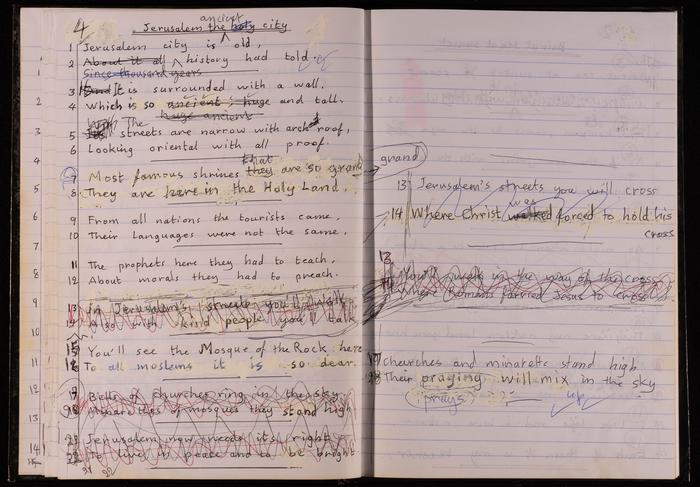 4
Jerusalem the holy city
ancient
1 Jerusalem city is old,
2 About it all history had told of
Since thousand years
3 And It is surrounded with a wall.
4 Which is so ancient, huge and tall.
With The huge ancient
5 streets are narrow with arch roof,
6 Looking oriental with all proof.
that
7 Most famous shrines they are so grand
grand
8 They are here in the Holy Land.
9 From all nations the tourists came,
10 Their Languages were not the same.
11 The prophets here they had to teach,
12 About morals they had to preach.
13 In Jerusalem's streets you'll walk
14 Also with kind people you'll talk
15 You'll see the Mosque of the Rock here
16 To all moslems it is so dear.
Bells of churches ring in the sky
Minarettes of mosques they stand high
21 Jerusalem now needs its right
22 To live in peace and to be bright
21 22
13 Jerusalem's streets you will cross
was
14 Where Christ walked forced to hold his
cross
13
14
You'll walk in the way of the cross
Where Romans forced Jesus to cross
17 churches and minarets stand high
18 Their praying will mix in the sky
(prays)